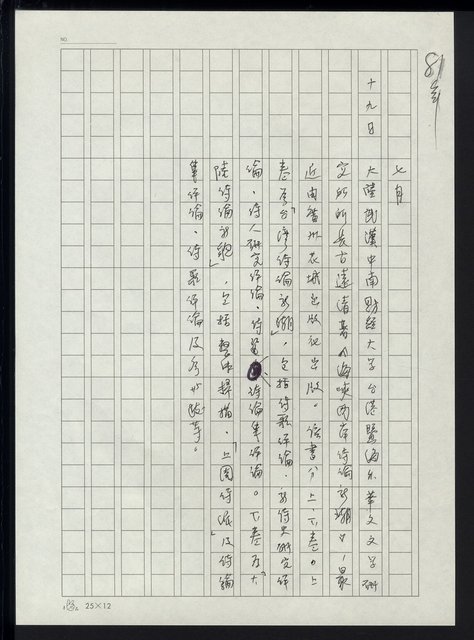 81年
七月
十九日
大陸武漢中南財經大學台港暨海外華文文學研
究所所長古遠清著《海峽兩岸詩論新潮》,最
近由花城出版社出版。該書分上、下卷。上
卷為「台灣詩論新潮」,包括詩歌評論、新詩史研究評
論、詩人研究評論、詩論集評論。下卷為「大
陸詩論新貌」,包括整體掃描、「上園詩派」及詩論
集評論、詩歌評論及序跋等。
NO.
25×12